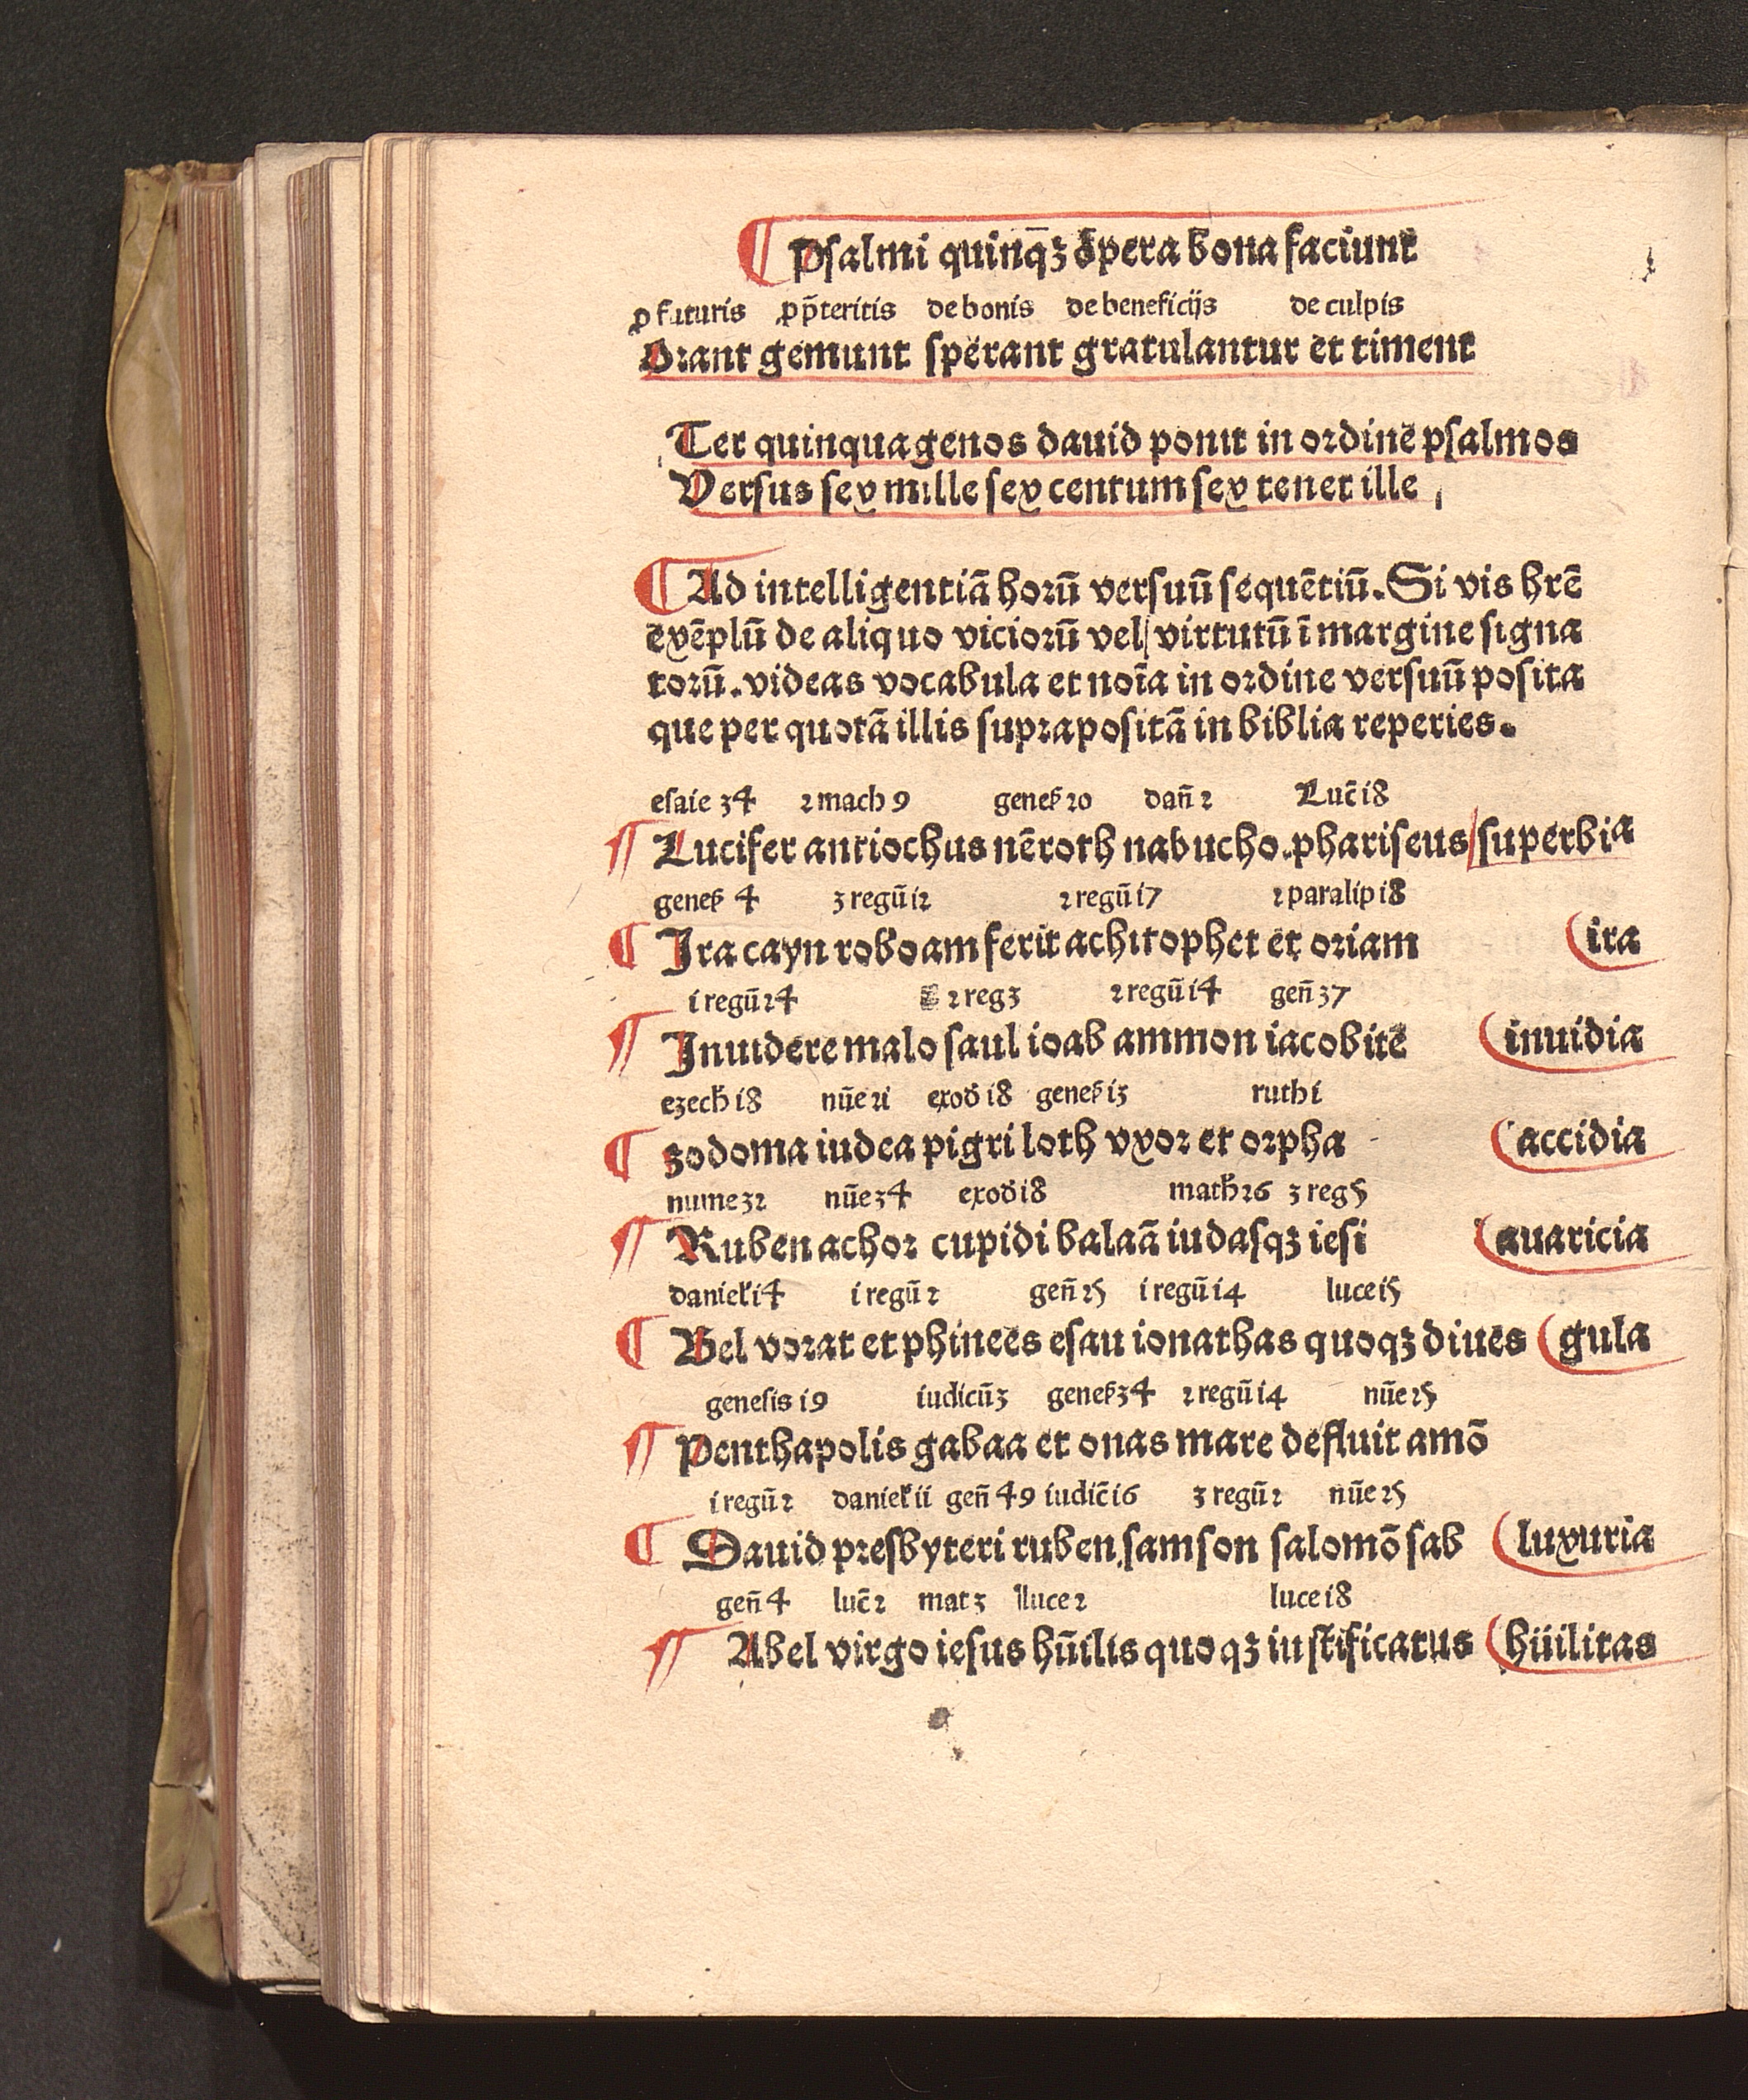 ¶ Psalmi quinqꝫ opera bona faciunt
ꝓ futuris ꝓ p̄teritis de bonis de beneficijs de culpis
Orant gemunt sperant gratulantur et timent
Ter quinquagenos dauid ponit in ordinē psalmos
Versus sex mille sex centum sex tenet ille
¶ Ad intelligentiā horū versuū sequētiū. Si vis hr̄e
exēplū de aliquo viciorū vel virtutū ī margine signa
torū. videas vocabula et noīa in ordine versuū posita
que per quotā illis suprapositā in biblia reperies.
esaie 34 2 mach 9 geneẜ 20 dan̄ 2 Luc̄ i8
¶ Lucifer antiochus nēroth nabucho. phariseus superbia
geneẜ 4 3 regū i2 2 regū i7 2 paralip i8
¶ Ira cayn roboam ferit achitophet et oriam ira
i regū 24 2 reg 3 2 regū i4 gen̄ 37
¶ Inuidere malo saul ioab ammon iacobitē inuidia
ezecħ i8 nūe 2i exod̄ i8 geneẜ i3 ruth i
¶ zodoma iudea pigri loth vxor et orpha accidia
nume 32 nūe 34 exod̄ i8 matħ 26 3 reg 5
¶ Ruben achor cupidi balaā iudasqꝫ iesi auaricia
danieł i4 i regū 2 gen̄ 25 i regū i4 luce i5
¶ Bel vorat et phinees esau ionathas quoqꝫ diues gula
genesis i9 iudicū 3 geneẜ 34 2 regū i4 nūe 25
¶ Penthapolis gabaa et onas mare defluit amō
i regū 2 danieł ii gen̄ 49 iudic̄ i6 3 regū 2 nūe 25
¶ Dauid presbyteri ruben samson salomō sab luxuria
gen̄ 4 luc̄ 2 mat 3 luce 2 luce i8
¶ Abel virgo iesus hūilis quoqꝫ iustificatus hūilitas